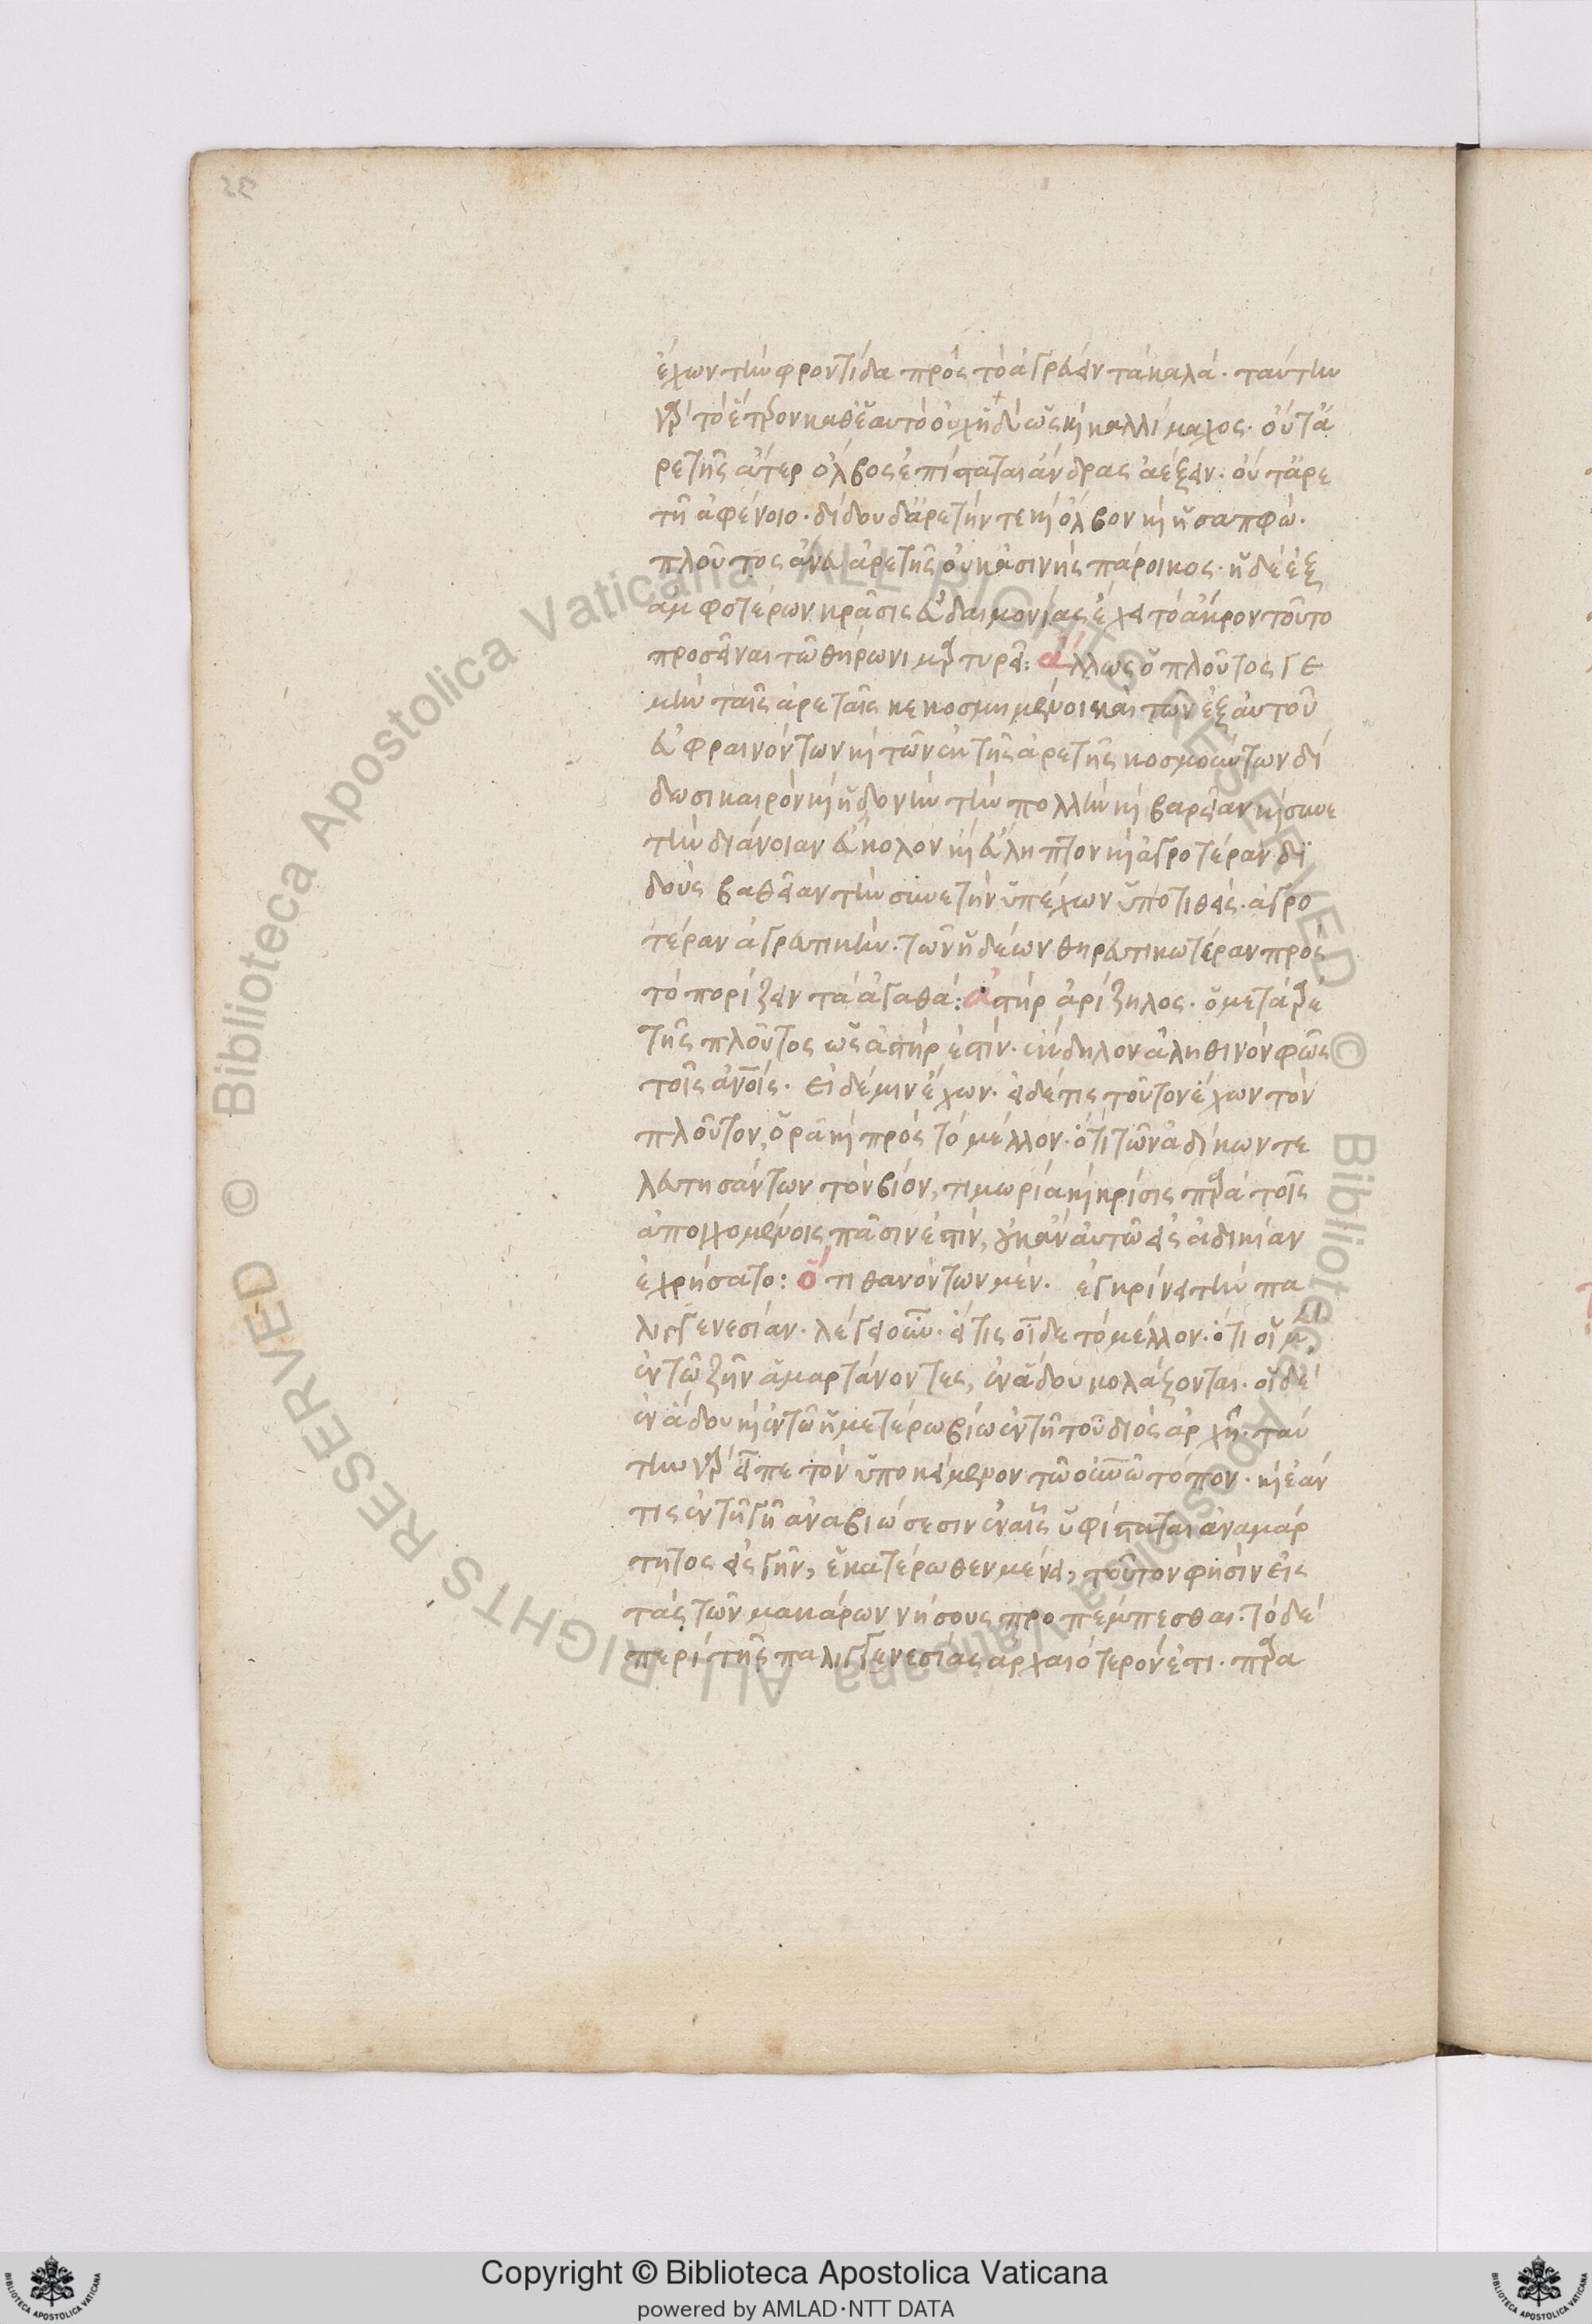 ἔχων τὴν φροντίδα πρὸς τὸ ἀγρεύειν τὰ καλά· ταύτην
γὰρ τὸ ἕτερον καθ' ἑαυτὸ οὐχ ἡδὺ ὡς καὶ καλλίμαχος· οὔτ' ἀ
ρετῆς ἄτερ ὄλβος ἐπίσταται ἄνδρας ἀέξειν· οὔτ' ἀρε
τὴ ἀφένοιο· δίδου δ' ἀρετήν τε καὶ ὄλβον καὶ ἡ σαπφώ·
πλοῦτος ἄνευ ἀρετῆς οὐκ ἀσινὴς πάροικος· ἡ δὲ ἐξ
ἀμφοτέρων κρᾶσις εὐδαιμονίας ἔχει τὸ ἄκρον τοῦτο
προσεῖναι τῶ θήρωνι μαρτυρεῖ: ἄλλως ὁ πλοῦτος γε
μὴν ταῖς ἀρεταῖς κεκοσμημένος καὶ τῶν ἐξ αὐτοῦ
εὐφραινόντων καὶ τῶν ἐκ τῆς ἀρετῆς κοσμούντων δί
δωσι καιρὸν καὶ ἡδονὴν τὴν πολλὴν καὶ βαρεῖαν καὶ συνε
τὴν διάνοιαν εὔκολον καὶ εὔληπτον καὶ ἀγροτέραν δι
δοὺς βαθεῖαν τὴν συνετὴν ὑπέχων ὑποτιθείς· ἀγρο
τέραν ἀγρευτικὴν· τῶν ἡδέων θηρευτικωτέραν πρὸς
τὸ πορίζειν τὰ ἀγαθά: ἀστὴρ ἀρίζηλος· ὁ μετὰ ἀρε
τῆς πλοῦτος ὡς ἀστήρ ἐστιν· ἔκδηλον ἀληθινὸν φῶς
τοῖς ἀνοις· εἰ δέ μιν ἔχων· εἰ δέ τις τοῦτον ἔχων τὸν
πλοῦτον, ὁρᾶ καὶ πρὸς τὸ μέλλον· ὅτι τῶν ἀδίκων τε
λευτησάντων τὸν βίον, τιμωρία καὶ κρίσις παρὰ τοῖς
ἀποιχομένοις πᾶσιν ἐστίν, οὐκ ἂν αὐτῶ εἰς ἀδικίαν
ἐχρήσατο: ὅτι θανόντων μὲν· ἐγκρίνει τὴν πα
λιγγενεσίαν· λέγει οὖν· εἴ τις οἶδε τὸ μέλλον· ὅτι οἱ μὲν
ἐν τῶ ζῆν ἁμαρτάνοντες, ἐν ἅδου κολάζονται· οἱ δὲ
ἐν ἅδου καὶ ἐν τῶ ἡμετέρω βίω ἐν τῇ τοῦ διὸς ἀρχῇ· ταύ
την γὰρ εἶπε τὸν ὑποκείμενον τῶ οὐνῶ τόπον· καὶ ἐάν
τις ἐν τῇ γῇ ἀναβιώσεσιν ἐν αἷς ὑφίσταται ἀναμάρ
τητος εἰς γῆν, ἑκατέρωθεν μένει, τοῦτον φησὶν εἰς
τὰς τῶν μακάρων νήσους προπέμπεσθαι· τὸ δὲ
περὶ τῆς παλιγγενεσίας ἀρχαιότερόν ἐστι· παρὰ
Copyright © Biblioteca Apostolica Vaticana
powered by AMLAD·NTT DATA